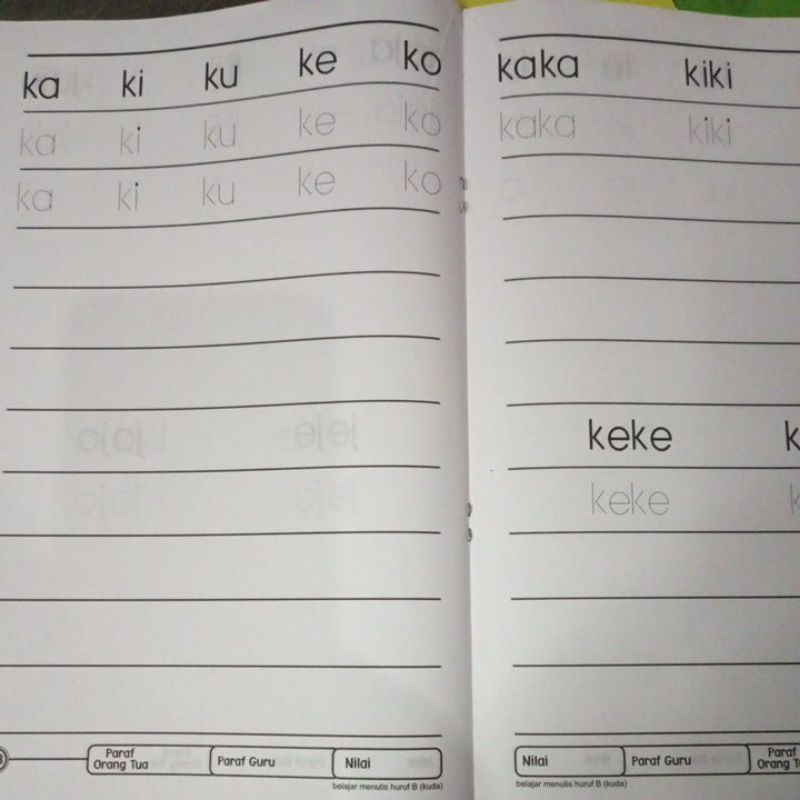 ka ki ku ke ko
ka ki ku ke ko
ka ki ku ke ko
Paraf
Orang Tua
Paraf Guru
Nilai
belajar menulis huruf B (kuda)
kaka kiki
kaka kiki
keke
keke
Nilai
Paraf Guru
Paraf
Orang
belajar menulis huruf B (kuda)